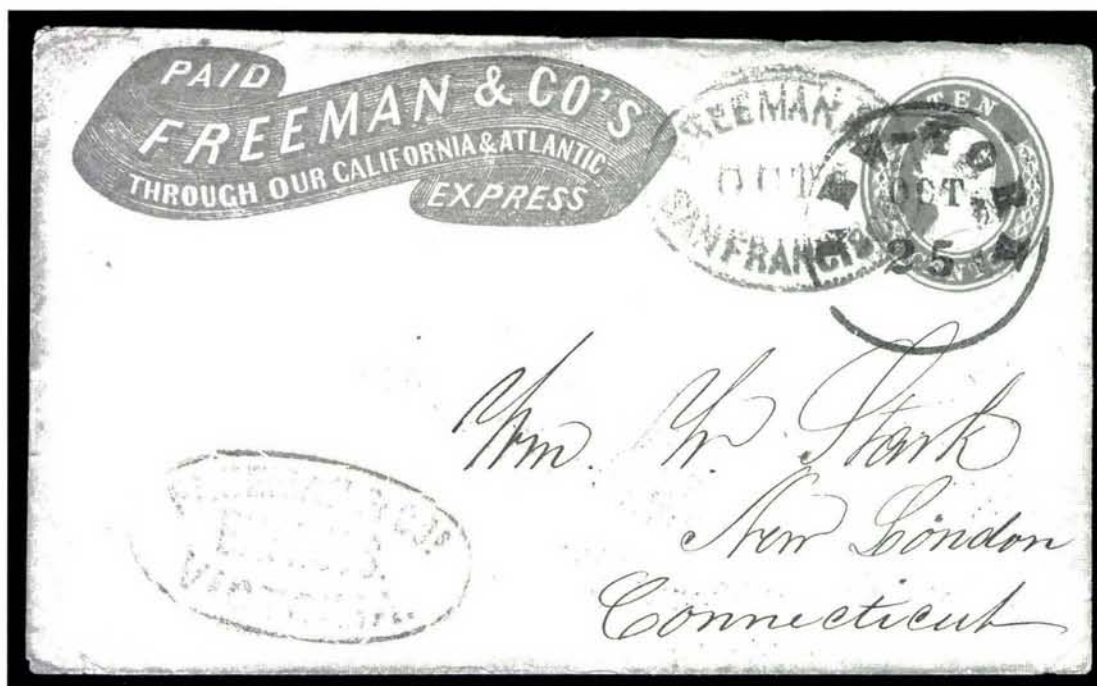 PAID
FREEMAN & CO'S
THROUGH OUR CALIFORNIA & ATLANTIC
EXPRESS
FREEMAN
OCT
SAN FRANCIS
TEN
OCT
25
Wm. W. Stark
New London
Connecticut